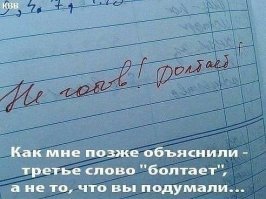 КВВ
Не готов! Болтает!
Как мне позже объяснили -
третье слово "болтает",
а не то, что вы подумали...